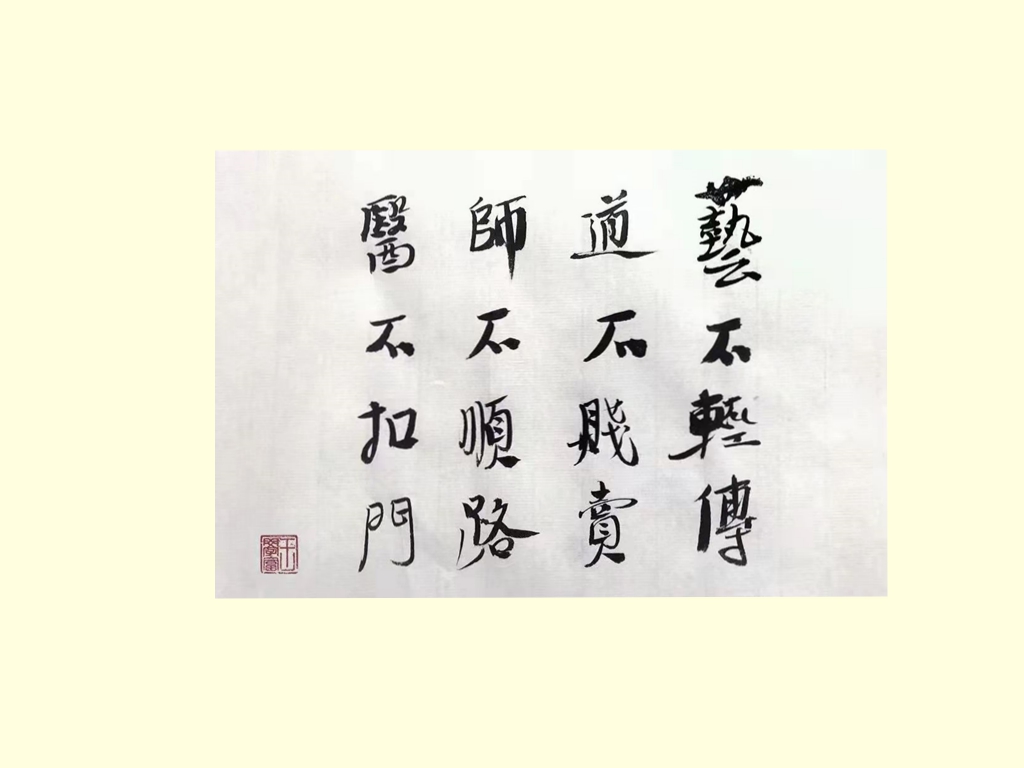 藝不輕傳
道不賤賣
師不順路
醫不扣門